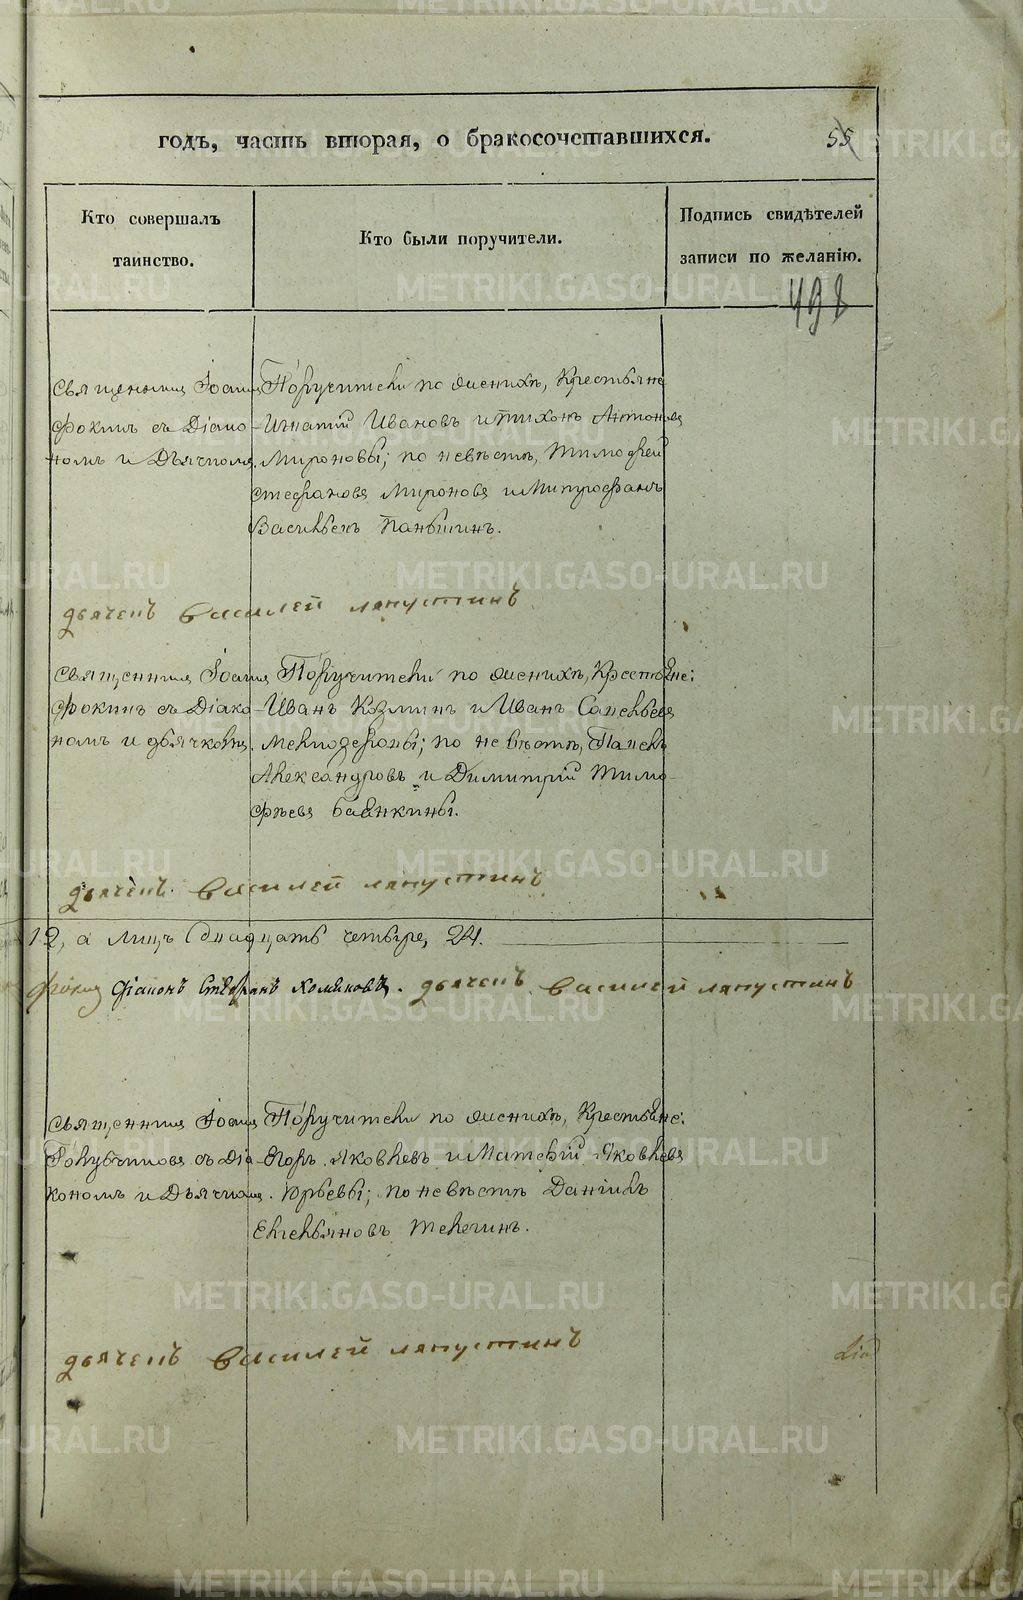 годъ, часть вторая, о бракосочетавшихся.
55
Кто совершалъ таинство.
Кто были поручители.
Подпись свидѣтелей записи по желанію.
498
Священникъ Іоаннъ
Фокинъ съ Діако-
номъ и Дьячкомъ.
Поручители по женихѣ, Крестьяне
Игнатій Ивановъ и Тихонъ Антоновъ
Мироновы; по невѣстѣ, Тимофей
Стефановъ Мироновъ и Митрофанъ
Васильевъ Паньшинъ.
дьячекъ Василей ляпустинъ
Священникъ Іоаннъ
Фокинъ съ Діако-
номъ и дьячкомъ.
Поручители по женихѣ, Крестьяне:
Иванъ Козминъ и Иванъ Савельевъ
по невѣстѣ, Павелъ
Александровъ и Димитрій Тимо-
фѣевъ Бабнкины.
дьячекъ Василей ляпустинъ
12, а лицъ Двадцать четыре, 24.
Фокинъ Діаконъ Стефанъ Хомяковъ. дьячекъ Василей ляпустинъ
Священникъ Іоаннъ
Голубчиковъ съ Діа-
кономъ и Дьячкомъ.
Поручители по женихѣ, Крестьяне:
Егоръ Яковлевъ и Матвѣй Яковлевъ
Юрьевы; по невѣстѣ Даніилъ
Емельяновъ Телегинъ.
дьячекъ Василей ляпустинъ
Діа
METRIKI.GASO-URAL.RU